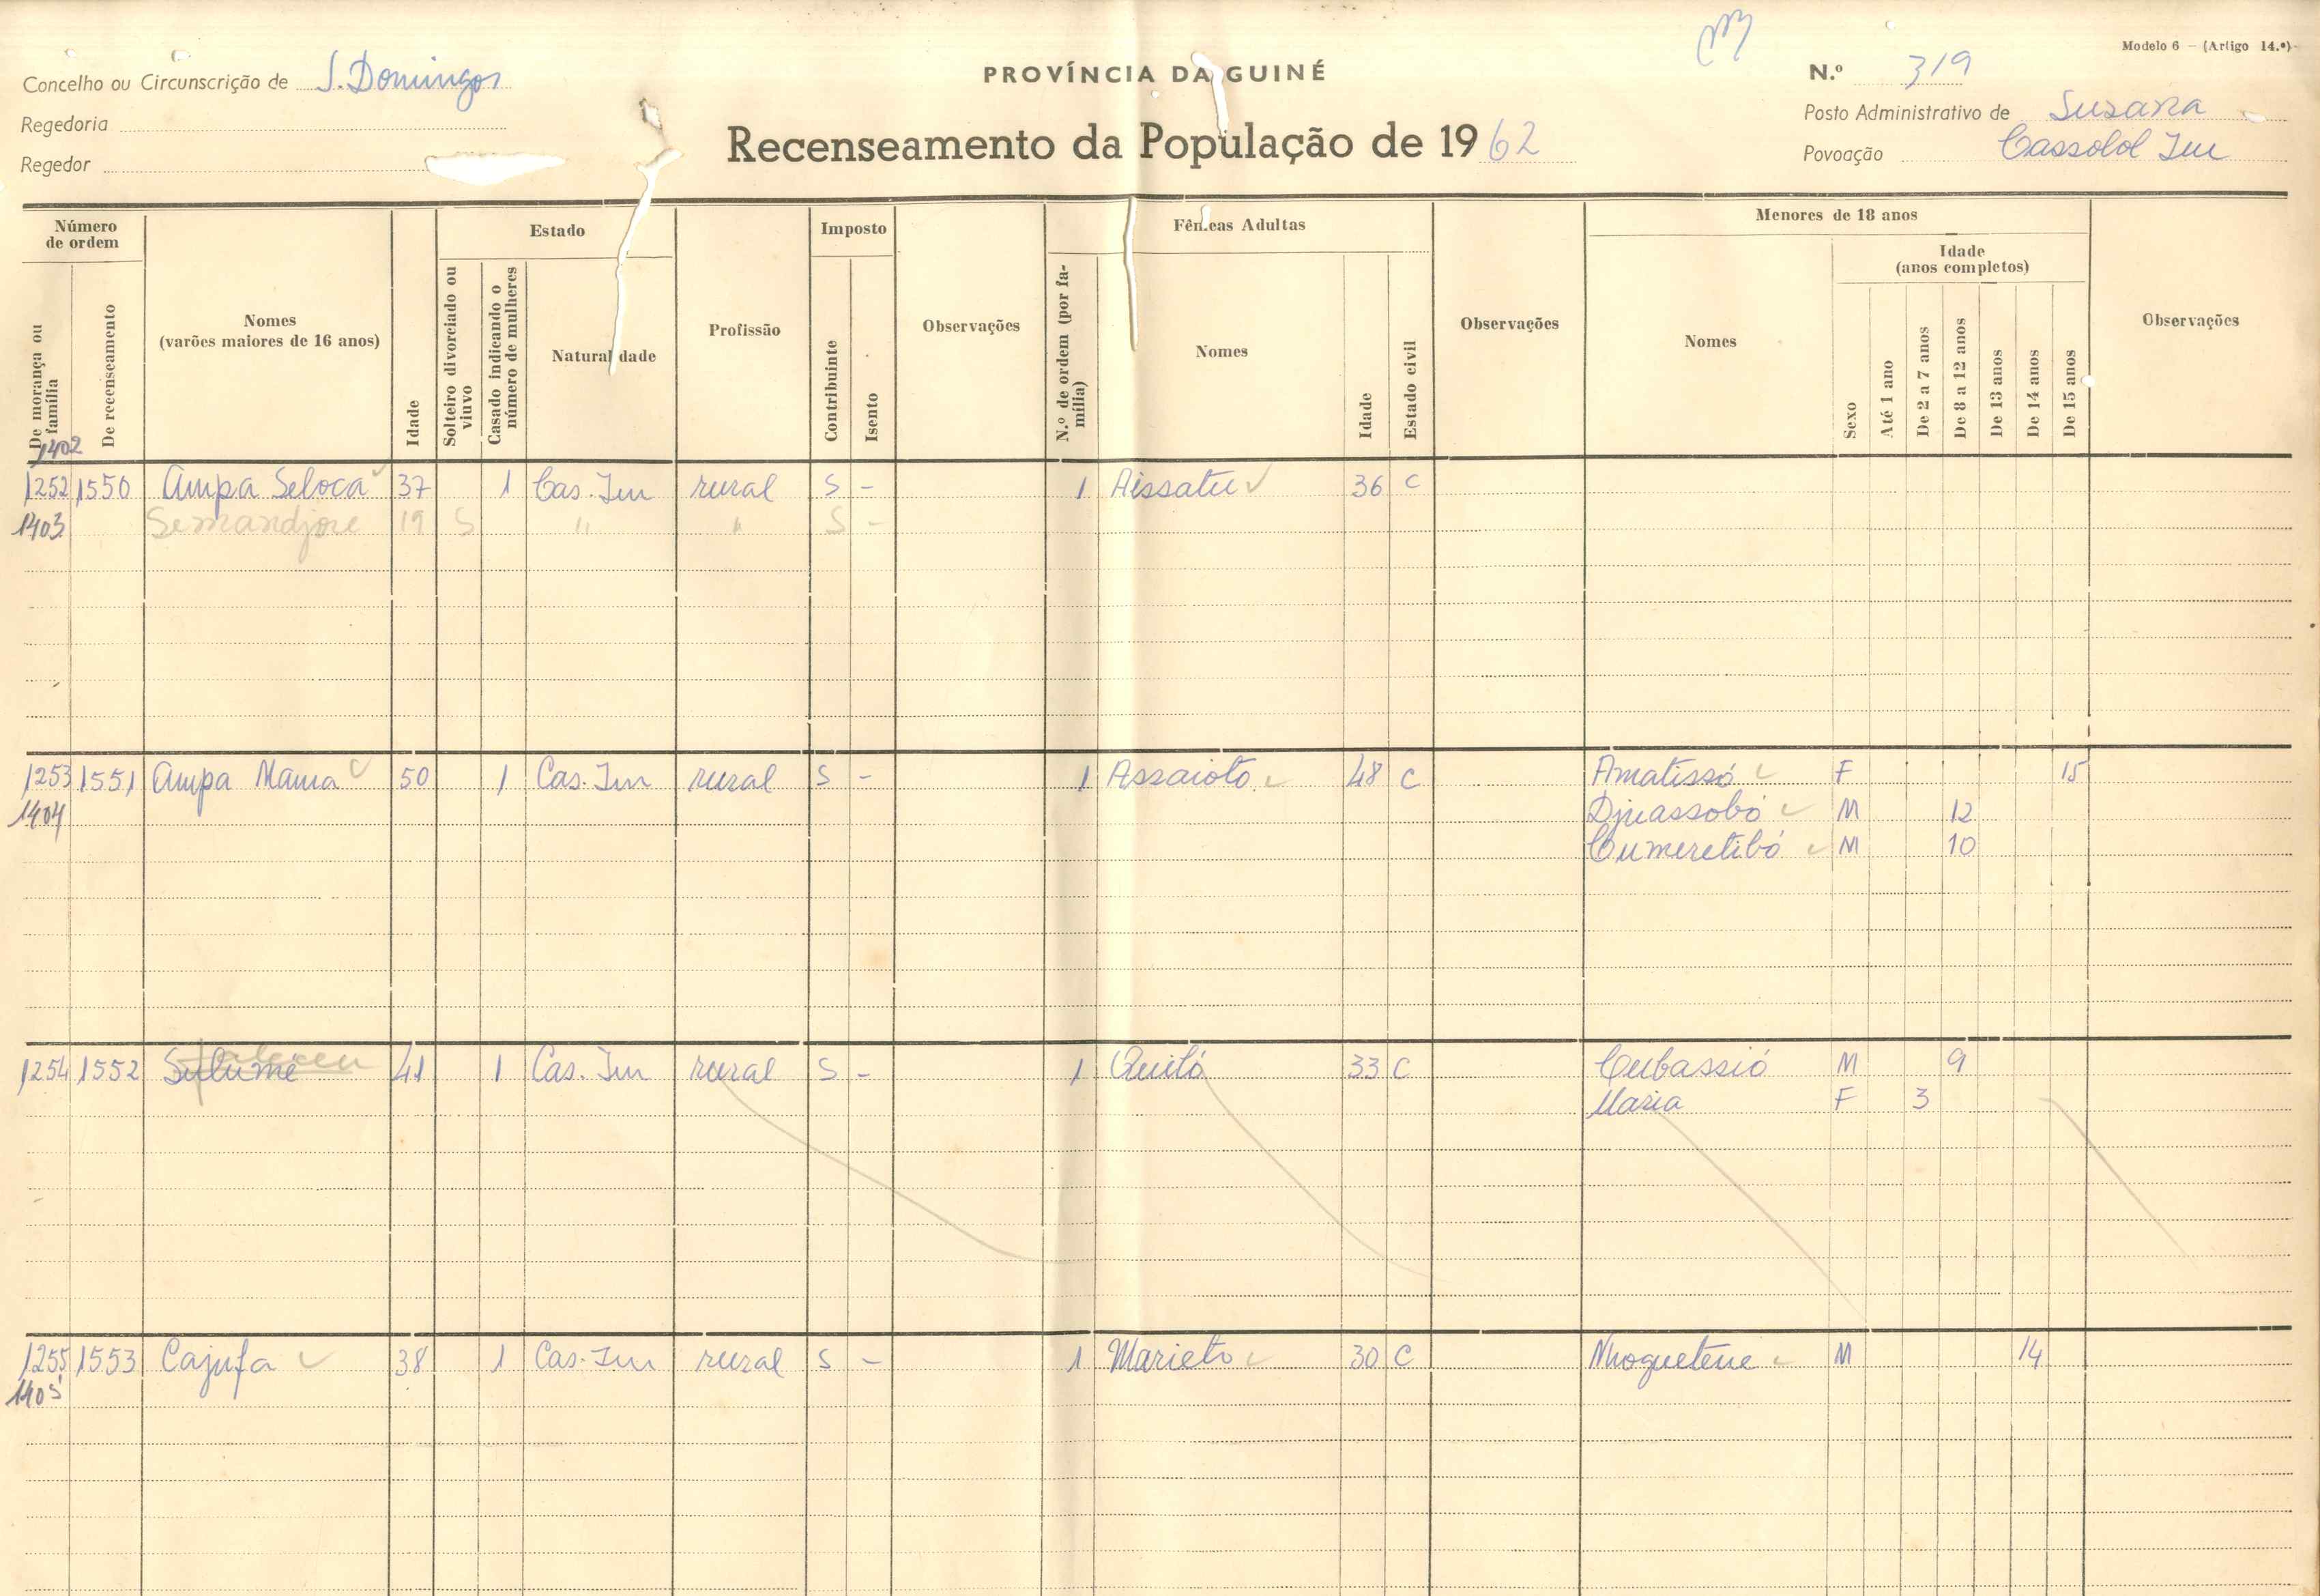 Modelo 6 — (Artigo 14.º)
Concelho ou Circunscrição de S. Domingos
PROVÍNCIA DA GUINÉ
N.º 319
Regedoria
Posto Administrativo de Susana
Regedor
Recenseamento da População de 1962
Povoação Cassolol Iu
Número de ordem
Estado
Imposto
Fêmeas Adultas
Menores de 18 anos
De morança ou família
De recenseamento
Nomes (varões maiores de 16 anos)
Idade
Solteiro divorciado ou viuvo
Casado indicando o número de mulheres
Naturalidade
Profissão
Contribuinte
Isento
Observações
N.º de ordem (por família)
Nomes
Idade
Estado civil
Observações
Nomes
Sexo
Idade (anos completos)
Até 1 ano
De 2 a 7 anos
De 8 a 12 anos
De 13 anos
De 14 anos
De 15 anos
Observações
1402
1252 1550 Ampa Seloca 37 1 Cas. Iu rural S - 1 Aissatu 36 C
1403 Semandjore 19 S " " S -
1253 1551 Ampa Mama 50 1 Cas. Iu rural S - 1 Assaioto 48 C Amatissó F 15
1404 Djuassobó M 12
Cumeretibó M 10
1254 1552 Sulumé 41 1 Cas. Iu rural S - 1 Quitó 33 C Cubassió M 9
Maria F 3
1255 1553 Cajufa 38 1 Cas. Iu rural S - 1 Marieto 30 C Nhoquetene M 14
1405